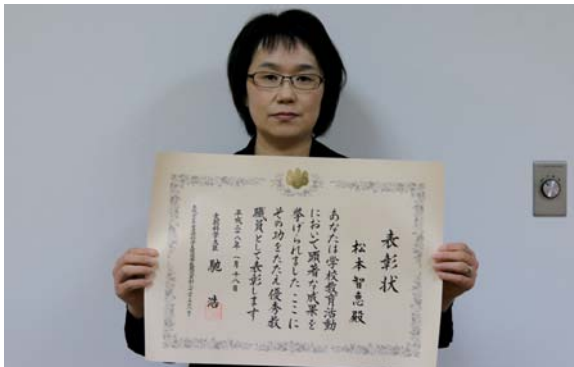 表彰状
松本智恵殿
あなたは学校教育活動
において顕著な成果を
挙げられました ここに
その功をたたえ優秀教
職員として表彰します
平成二十八年一月十八日
文部科学大臣 馳 浩